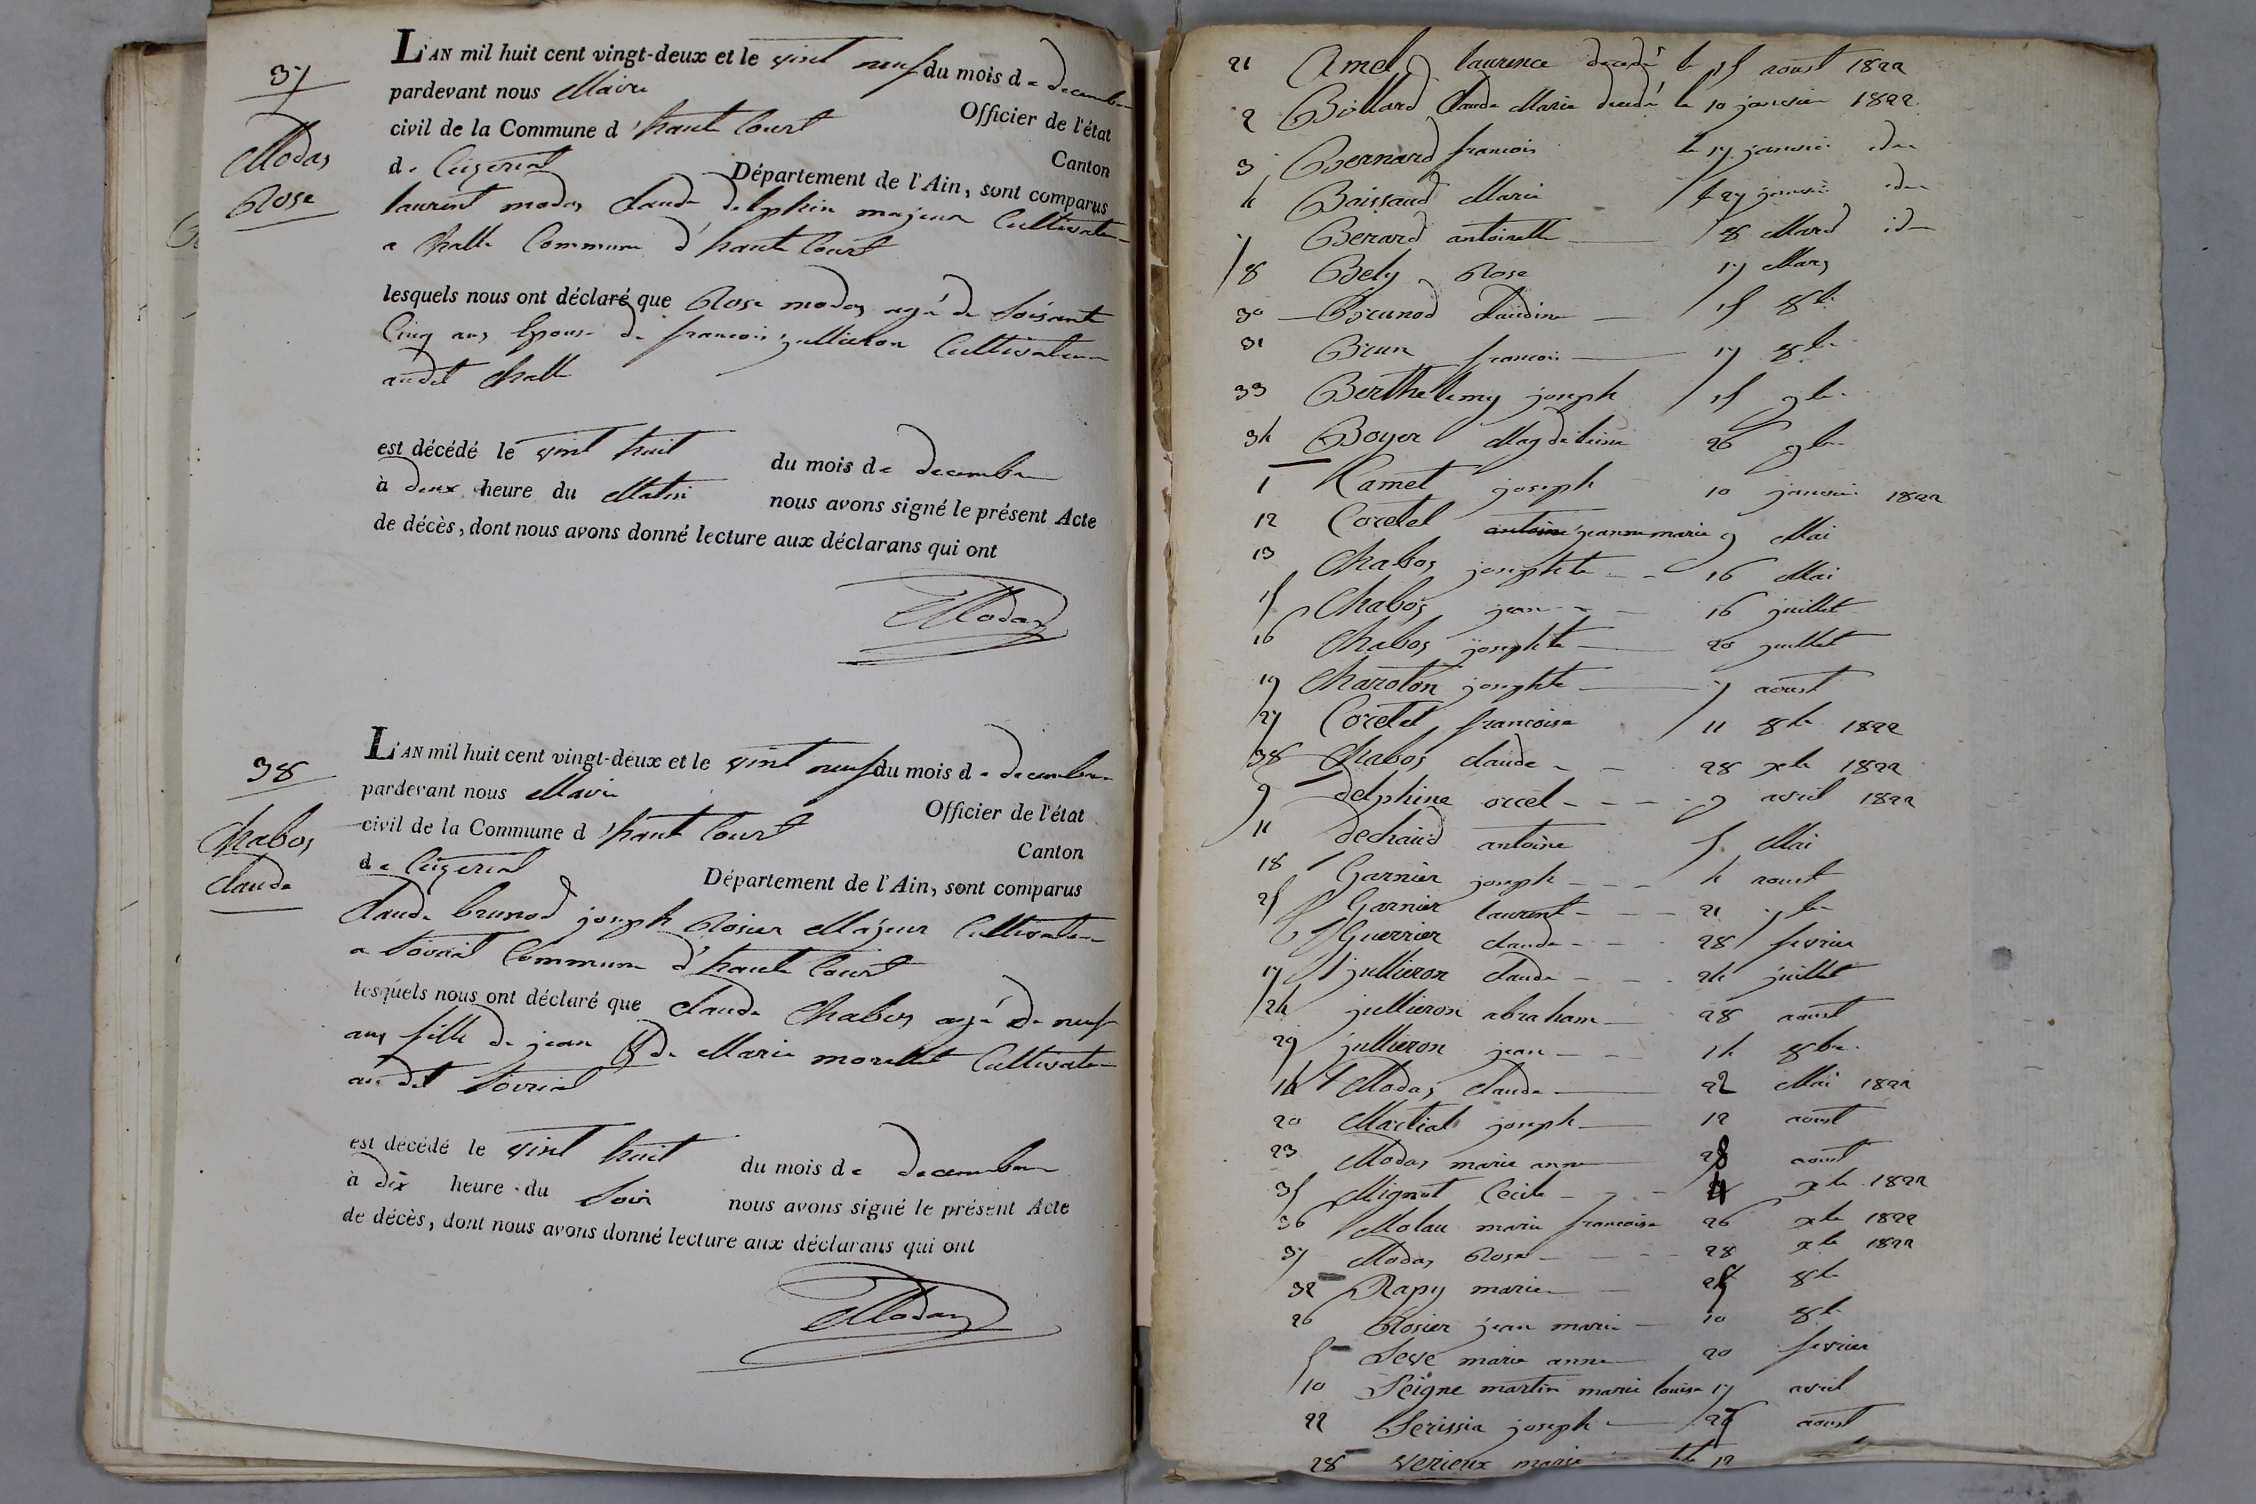 37
Modas
Rose
L'AN mil huit cent vingt-deux et le vint neuf du mois de decembre
pardevant nous Maire
Officier de l'état
civil de la Commune d'haute Court
Canton
de Ceÿzeriat
Département de l'Ain, sont comparus
laurent modas Claude delphin majeur Cultivateur
a Challe Commune d'haute Court
lesquels nous ont déclaré que Rose modas agé de soisante
Cinq ans Epouse de francois jullieron Cultivateur
audit Challe
est décédé le vint huit du mois de decembre
à deux heure du Matin nous avons signé le présent Acte
de décès, dont nous avons donné lecture aux déclarans qui ont
Modas
38
Chabos
Claude
L'AN mil huit cent vingt-deux et le vint neuf du mois de decembre
pardevant nous Maire
Officier de l'état
civil de la Commune d'haute Court
Canton
de Ceÿzeriat
Département de l'Ain, sont comparus
Claude brunod joseph Rosier Majeur Cultivateur
a Commune d'haute Court
lesquels nous ont déclaré que Claude Chabos agé de neuf
ans fille de jean & de Marie morellet Cultivateur
au dit
est décédé le vint huit du mois de decembre
à dix heure du Soir nous avons signé le présent Acte
de décès, dont nous avons donné lecture aux déclarans qui ont
Modas
21 Amel laurence decedé le 15 aoust 1822
2 Billard Claude Marie decedé le 10 janvier 1822
3 Bernard francois le 17 janvier idem
4 Boissaud Marie le 27 janvier idem
7 Berard antoinette 8 Mars idem
8 Bely Rose 17 Mars
30 Brunod Claudine 15 8bre
31 Brun francois 17 8bre
33 Berthelemy joseph 15 9bre
34 Boyer Magdeleine 26 9bre
1 Camet joseph 10 janvier 1822
12 Coretel jeanne marie 9 Mai
13 Chabos josephte 16 Mai
15 Chabos jean 16 juillet
16 Chabos josephte 20 juillet
19 Charoton josephte 7 aoust
27 Coretel francoise 11 8bre 1822
38 Chabos Claude 28 xbre 1822
9 delphine orcel 9 avril 1822
11 dechaud antoine 5 Mai
18 Garnier joseph 4 aoust
25 Garnier laurent 21 7bre
6 Guerrier Claude 28 fevrier
17 jullieron Claude 24 juillet
24 jullieron abraham 28 aoust
29 jullieron jean 14 8bre
14 Modas Claude 22 Mai 1822
20 Martial joseph 12 aoust
23 Modas marie anne 28 aoust
35 Mignot Cecile 4 xbre 1822
36 Molau marie francoise 26 xbre 1822
37 Modas Rose 28 xbre 1822
32 Rapy marie 8bre
26 Rosier jean marie 10 8bre
5 Seve marie anne 20 fevrier
10 Seigne martin marie louise 17 avril
22 Serissia joseph aoust
28 verieux marie 12